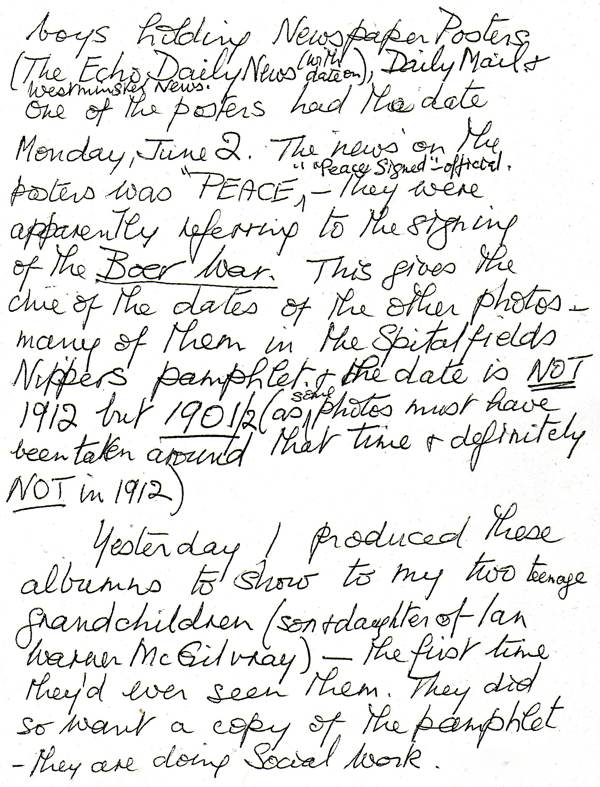 boys holding Newspaper Posters
(The Echo, Daily News (with date on), Daily Mail &
Westminster News.
One of the posters had the date
Monday, June 2. The 'news' on the
posters was "PEACE," "Peace Signed" - official. - they were
apparently referring to the signing
of the Boer War. This gives the
clue of the dates of the other photos -
many of them in the Spitalfields
Nippers pamphlet. & the date is NOT
1912 but 1901/2 (as some photos must have
been taken around that time & definitely
NOT in 1912)
Yesterday I produced these
albums to show to my two teenage
grandchildren (son & daughter of Ian
Warner McGilvray) - the first time
they'd ever seen them. They did
so want a copy of the pamphlet
- they are doing Social Work.